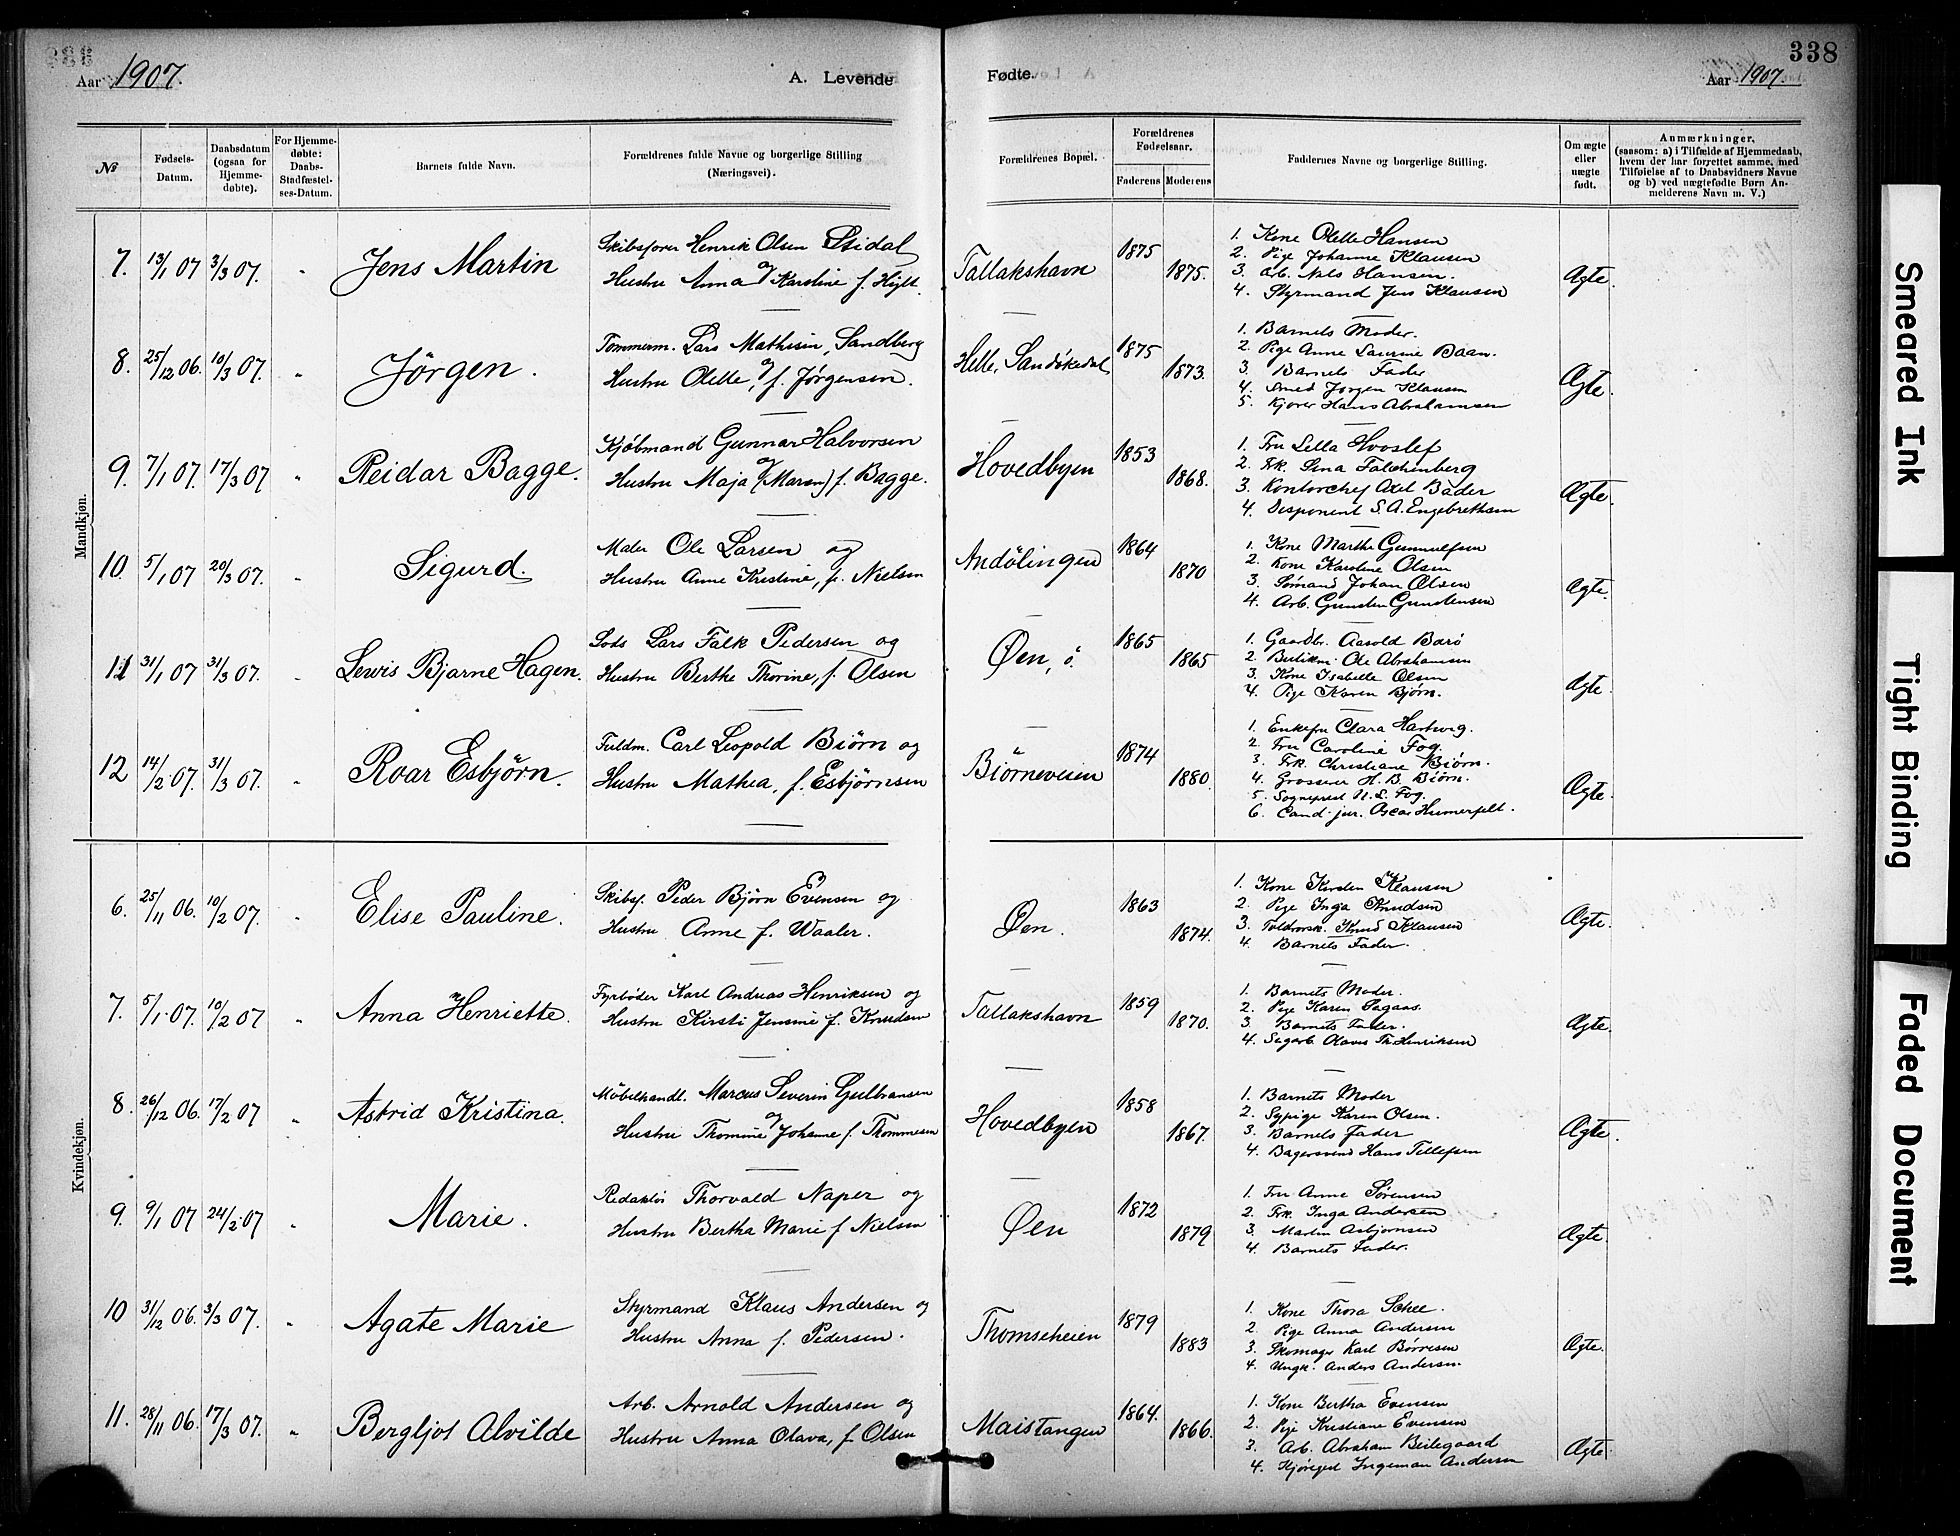 338
Aar 1907.
A. Levende
Fødte.
Aar 1907.
№
Fødsels-Datum.
Daabsdatum (ogsaa for Hjemme-døbte).
For Hjemme-døbte: Daabs-Stadfæstel-ses-Datum.
Barnets fulde Navn.
Forældrenes fulde Navne og borgerlige Stilling (Næringsvei).
Forældrenes Bopæl.
Forældrenes Fødselsaar.
Faderens Moderens
Faddernes Navne og borgerlige Stilling.
Om ægte eller uægte født.
Anmærkninger.
(saasom: a) i Tilfælde af Hjemmedaab, hvem der har forrettet samme, med Tilføielse af to Daabsvidners Navne og b) ved uægtefødte Børn Anmelderens Navn m. V.)
Mandkjøn.
7. 13/1 07 3/3 07. „ Jens Martin
Skibsfører Henrik Olsen
og
Hustru Anna Karoline f.
Tallakshavn 1875 1875.
1. Kone Olette Hansen
2. Pige Johanne Klausen
3. Arb. Nils Hansen.
4. Styrmand Jens Klausen
Ægte.
8. 25/12 06. 10/3 07. „ Jørgen.
Tømmerm. Lars Mathisen, Sandberg
og
Hustru Olette, f. Jørgensen.
Helle, Sandøkedal 1875 1873.
1. Barnets Moder.
2. Pige Anne Laurine Baan.
3. Barnets Fader
4. Smed Jørgen Klausen
5. Kjører Hans Abrahamsen
Ægte.
9. 7/1 07. 17/3 07 „ Reidar Bagge.
Kjøbmand Gunnar Halvorsen
og
Hustru Maja (Maren) f. Bagge.
Hovedbyen 1853 1868.
1. Fru Lella Hvoslef
2. Frk. Lena Falchenberg
3. Kontorchef Axel Bader
4. Disponent S. A. Engebrethsen
Ægte.
10. 5/1 07 20/3 07. „ Sigurd.
Maler Ole Larsen og
Hustru Anne Kristine, f. Nielsen
Andølingen 1864 1870
1. Kone Marthe Gunnulfsen
2. Kone Karoline Olsen
3. Sømand Johan Olsen
4. Arb. Gunsten Gunstensen
Ægte.
11 31/1 07 31/3 07. „ Lewis Bjarne Hagen.
Lods Lars Falk Pedersen og
Hustru Berthe Thorine, f. Olsen
Øen, ö. 1865 1865
1. Gaardbr. Aasold Barø
2. Ole Abrahamsen
3. Kone Isabelle Olsen
4. Pige Karen Bjørn.
Ægte
12 14/2 07. 31/3 07. „ Roar Esbjørn.
Fuldm. Carl Leopold Biørn og
Hustru Mathea, f. Esbjørnsen
Biørneveien 1874 1880.
1. Enkefru Clara Hartwig.
2. Fru Caroline Fog.
3. Frk. Christiane Biørn.
4. Grosserer H. B. Biørn.
5. Sogneprest N. L. Fog.
6. Cand. jur. Oscar Humerfelt.
Ægte.
Kvindekjøn.
6. 25/11 06. 10/2 07. „ Elise Pauline.
Skibsf. Peder Bjørn Evensen og
Hustru Anne f. Waaler.
Øen. 1863 1874.
1. Kone Kirsten Klausen
2. Pige Inga Knudsen
3. Knud Klausen
4. Barnets Fader.
Ægte.
7. 5/1 07. 10/2 07 „ Anna Henriette.
Fyrbøder Karl Andreas Henriksen og
Hustru Kirsti Jensine f. Knudsen
Tallakshavn 1859 1870.
1. Barnets Moder.
2. Pige Karen Sagaas.
3. Barnets Fader.
4. Sagarb. Olaves Th. Henriksen
Ægte.
8. 26/12 06. 17/2 07 „ Astrid Kristina.
Møbelhandl. Marcus Severin Gulbransen
og
Hustru Thomine Johanne f. Thommesen
Hovedbyen 1858 1867.
1. Barnets Moder
2. Sypige Karen Olsen.
3. Barnets Fader
4. Bagersvend Hans Tellefsen
Ægte.
9. 9/1 07 24/2 07 „ Marie.
Redaktør Thorvald Naper og
Hustru Bertha Marie f. Nielsen
Øen 1872 1879
1. Fru Anne Sørensen
2. Frk. Inga Andersen
3. Martin Asbjørnsen
4. Barnets Fader.
Ægte.
10 31/12 06. 3/3 07. „ Agate Marie
Styrmand Klaus Andersen og
Hustru Anna f. Pedersen.
Thomseheien 1879 1883
1. Kone Thora Schee.
2. Pige Anna Andersen
3. Skomager Karl Børresen
4. Ungk. Anders Andersen.
Ægte.
11. 28/11 06. 17/3 07. „ Bergljot Alvilde
Arb. Arnold Andersen og
Hustru Anna Olava, f. Olsen
Maistangen 1864. 1866.
1. Kone Bertha Evensen
2. Pige Kristiane Evensen
3. Arb. Abraham Beilegaard
4. Ingeman Andersen
Ægte.
Smeared Ink
Tight Binding
Faded Document